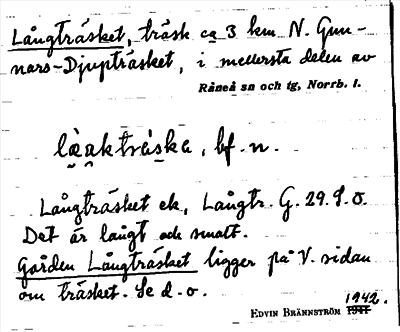 Långträsket, träsk ca 3 km N. Gun-
nars-Djupträsket, i mellersta delen av
Råneå sn och tg, Norrb. l.
lå̀ŋktrǽska, bf. n.
Långträsket ek, Långtr. G. 29. 9. o.
Det är långt och smalt.
Gården Långträsket ligger på V. sidan
om träsket. Se d. o.
EDVIN BRÄNNSTRÖM 1942.